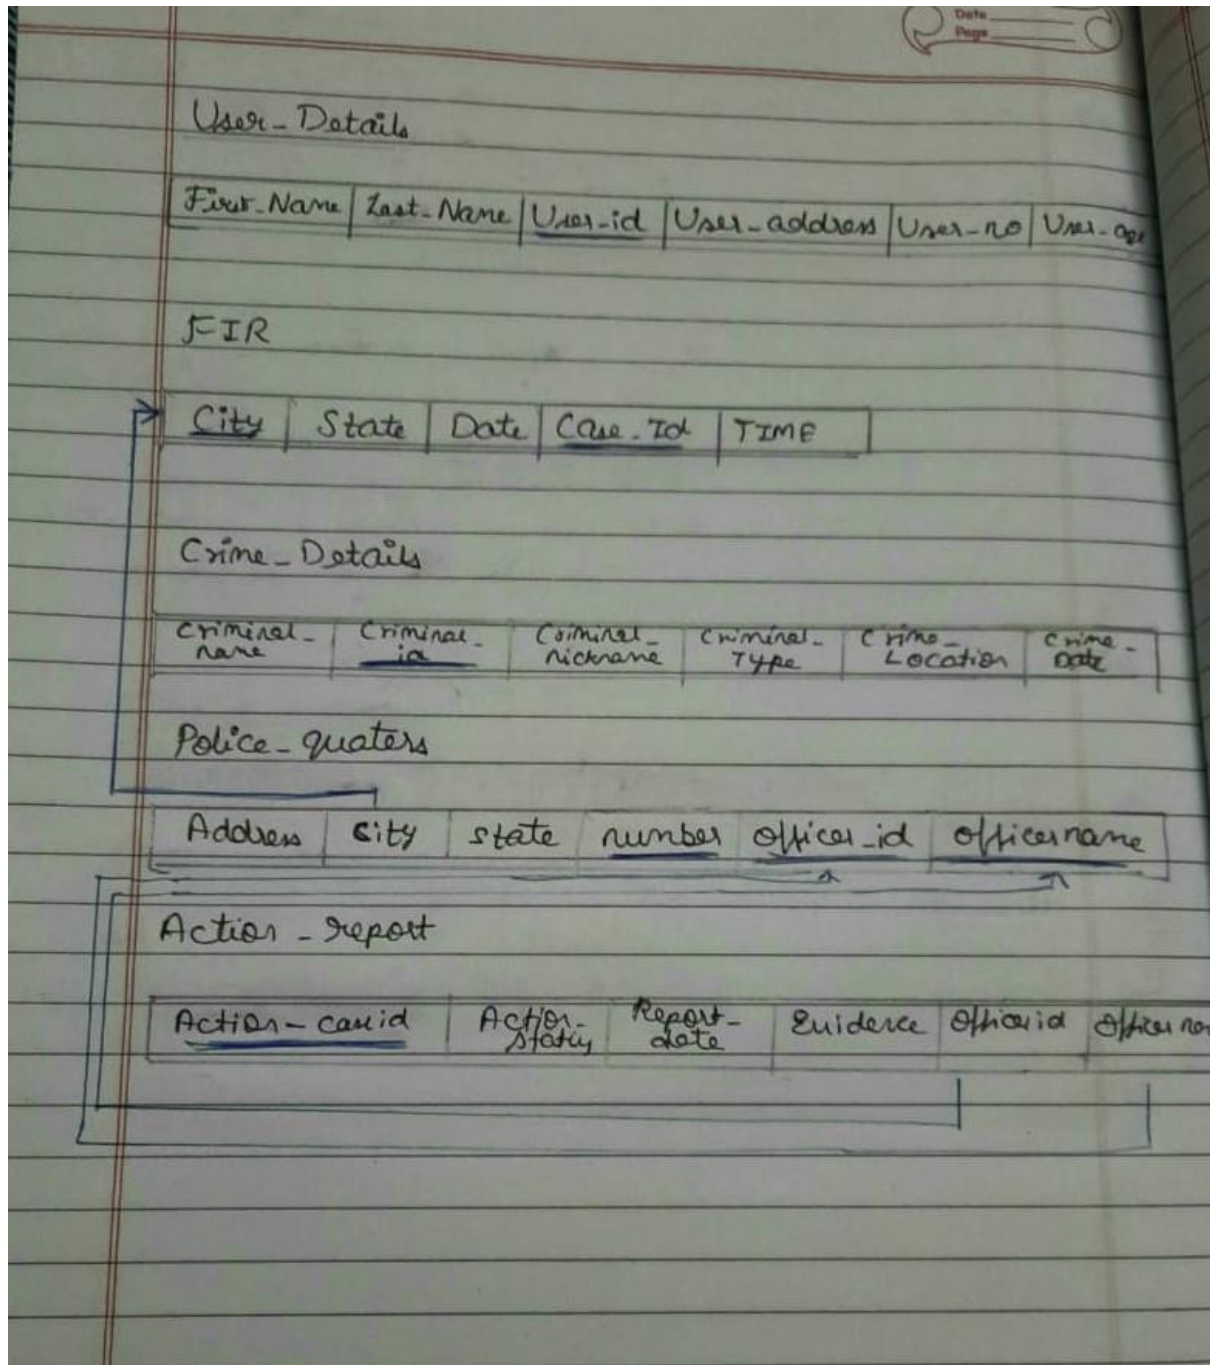 Date
Page
User_Details
First_Name Last_Name User_id User_address User_no User_age
FIR
City State Date Case_Id TIME
Crime_Details
Criminal_ Criminal_ Criminal_ Criminal_ Crime_ Crime_
name id nickname Type Location Date
Police_quaters
Address City state number officer_id officername
Action_report
Action_caseid Action_ Report_ Evidence Officerid
status date